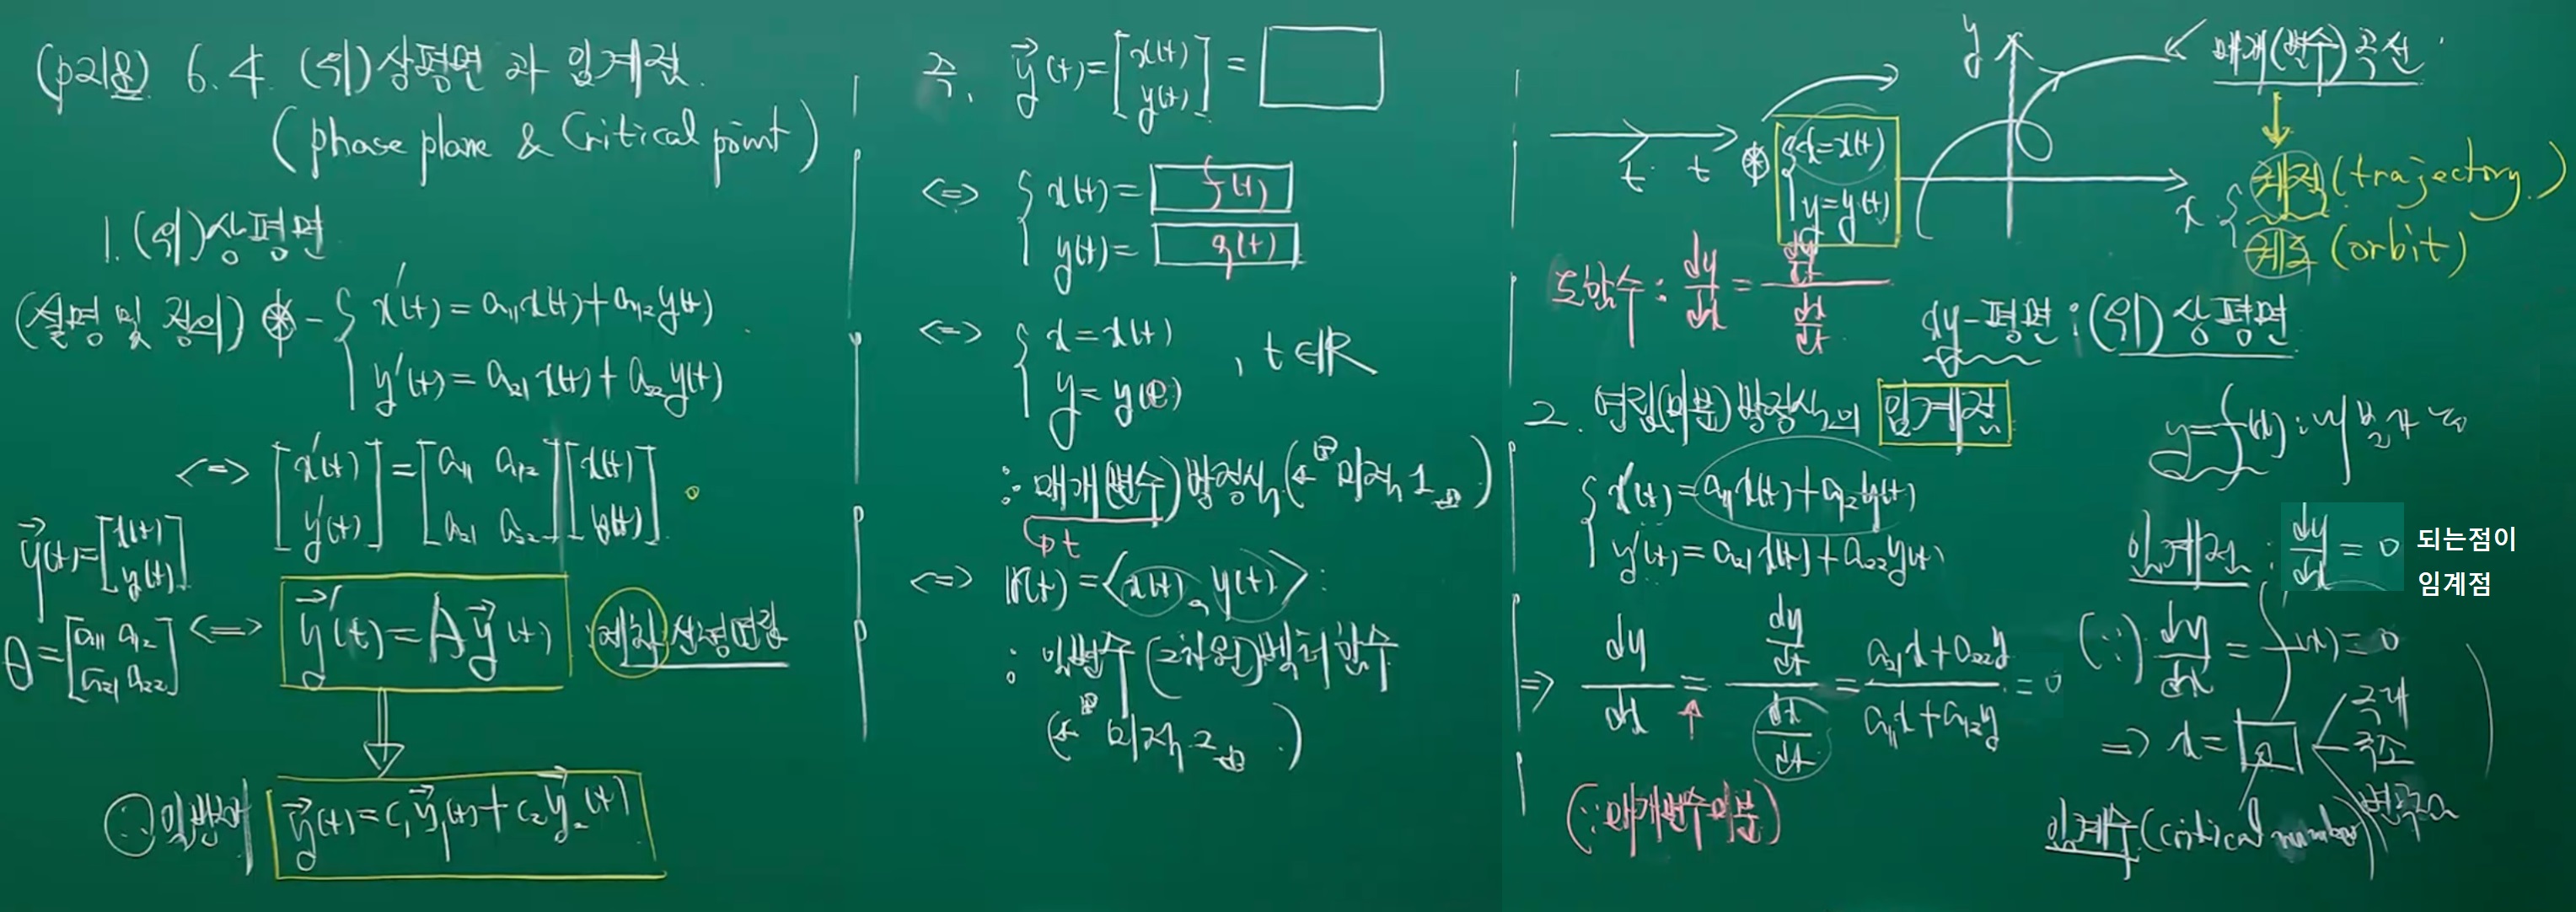 (p218) 6.4. (위)상평면 과 임계점.
(phase plane & Critical point)
1. (위)상평면
(설명 및 정의) ⊛ - { x'(t) = a₁₁x(t) + a₁₂y(t)
y'(t) = a₂₁x(t) + a₂₂y(t)
<=> [x'(t) y'(t)] = [a₁₁ a₁₂ a₂₁ a₂₂] [x(t) y(t)]
y(t) = [x(t) y(t)]
= [a₁₁ a₁₂ a₂₁ a₂₂] <=> y'(t) = A y(t) : 제차 선형연립
일반해 y(t) = c₁y₁(t) + c₂y₂(t)
즉, y(t) = [x(t) y(t)] =
<=> { x(t) = f(t)
y(t) = g(t)
<=> { x = x(t)
y = y(t) , t ∈ ℝ
: 매개(변수) 방정식 (← 미적1)
t
<=> r(t) = <x(t), y(t)> :
: 일변수 (2차원) 벡터함수
(← 미적2)
t t ⊛ { x = x(t)
y = y(t)
y
x
매개(변수)곡선
궤적 (trajectory)
궤도 (orbit)
도함수 : dy/dx = (dy/dt)/(dx/dt)
xy-평면 : (위)상평면
2. 연립(미분)방정식의 임계점
{ x'(t) = a₁₁x(t) + a₁₂y(t)
y'(t) = a₂₁x(t) + a₂₂y(t)
=> dy/dx = (dy/dt)/(dx/dt) = (a₂₁x + a₂₂y)/(a₁₁x + a₁₂y) = 0
(∵ 매개변수미분)
y = f(x) :
임계점 : dy/dx = 0 되는점이
임계점
(∵) dy/dx = f'(x) = 0
=> x = a
극대
극소
변곡점
임계수 (critical number)